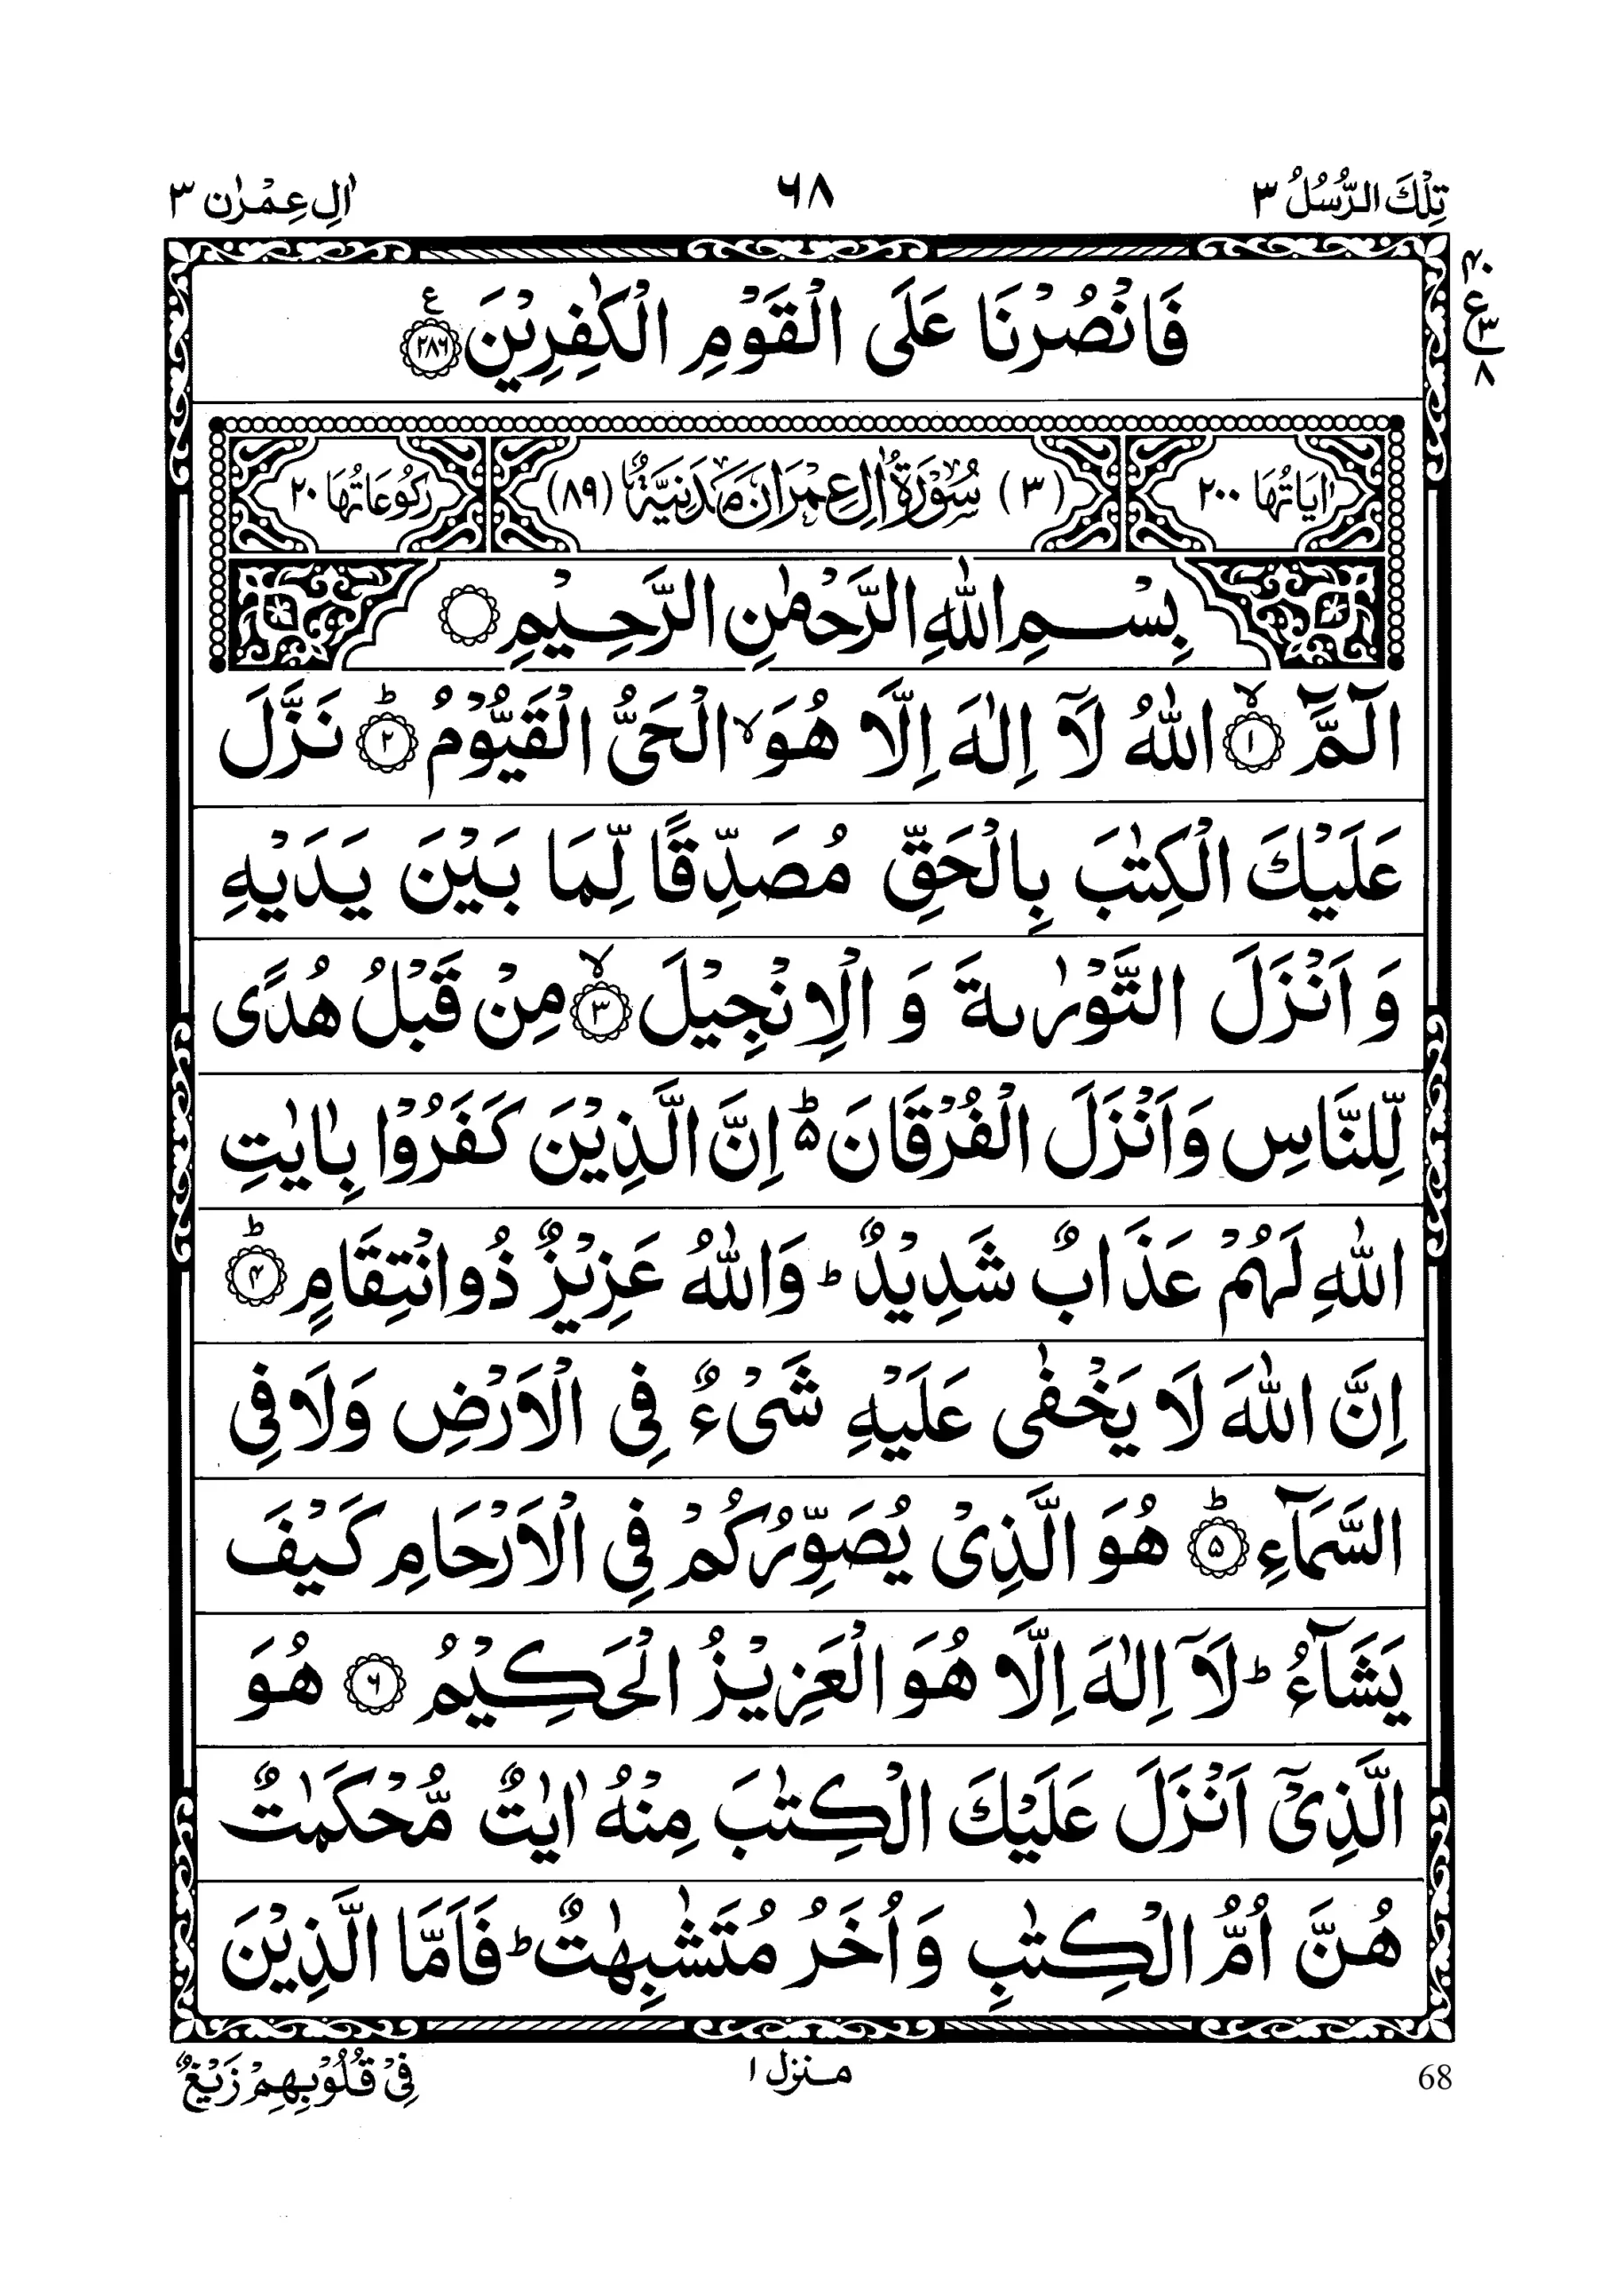 تِلْكَ الرُّسُلُ ٣
٦٨
اٰلِ عِمْرٰن ٣
ع
٤٠
٣
٨
فَانْصُرْنَا عَلَى الْقَوْمِ الْكٰفِرِيْنَ ﴿٢٨٦﴾ ع
اٰيَاتُهَا ٢٠٠
(٣) سُوْرَةُ اٰلِ عِمْرَانَ مَدَنِيَّةٌ (٨٩)
رُكُوْعَاتُهَا ٢٠
بِسْمِ اللّٰهِ الرَّحْمٰنِ الرَّحِيْمِ
الٓمّٓ ﴿١﴾ۙ اللّٰهُ لَآ اِلٰهَ اِلَّا هُوَۙ الْحَيُّ الْقَيُّوْمُ ﴿٢﴾ؕ نَزَّلَ
عَلَيْكَ الْكِتٰبَ بِالْحَقِّ مُصَدِّقًا لِّمَا بَيْنَ يَدَيْهِ
وَ اَنْزَلَ التَّوْرٰىةَ وَ الْاِنْجِيْلَ ﴿٣﴾ۙ مِنْ قَبْلُ هُدًى
لِّلنَّاسِ وَاَنْزَلَ الْفُرْقَانَ ۵ؕ اِنَّ الَّذِيْنَ كَفَرُوْا بِاٰيٰتِ
اللّٰهِ لَهُمْ عَذَابٌ شَدِيْدٌؕ وَاللّٰهُ عَزِيْزٌ ذُوانْتِقَامٍ ﴿۴﴾ؕ
اِنَّ اللّٰهَ لَا يَخْفٰى عَلَيْهِ شَيْءٌ فِى الْاَرْضِ وَلَا فِى
السَّمَآءِ ﴿۵﴾ؕ هُوَ الَّذِيْ يُصَوِّرُكُمْ فِى الْاَرْحَامِ كَيْفَ
يَشَآءُؕ لَآ اِلٰهَ اِلَّا هُوَ الْعَزِيْزُ الْحَكِيْمُ ﴿٦﴾ هُوَ
الَّذِيْٓ اَنْزَلَ عَلَيْكَ الْكِتٰبَ مِنْهُ اٰيٰتٌ مُّحْكَمٰتٌ
هُنَّ اُمُّ الْكِتٰبِ وَ اُخَرُ مُتَشٰبِهٰتٌؕ فَاَمَّا الَّذِيْنَ
68
منزل ١
فِيْ قُلُوْبِهِمْ زَيْغٌ